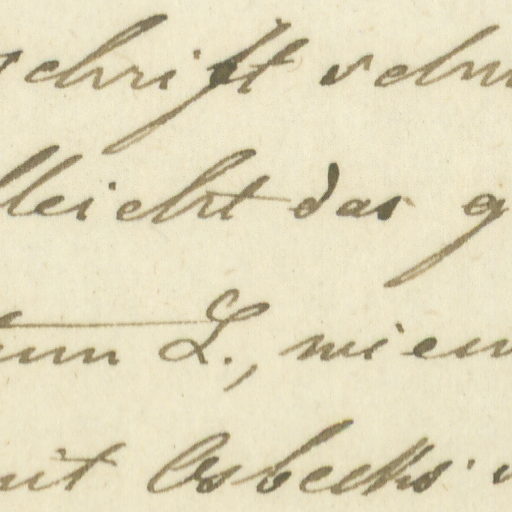 schrift schr
lleicht das g
tum L., wien
mit Osbecks